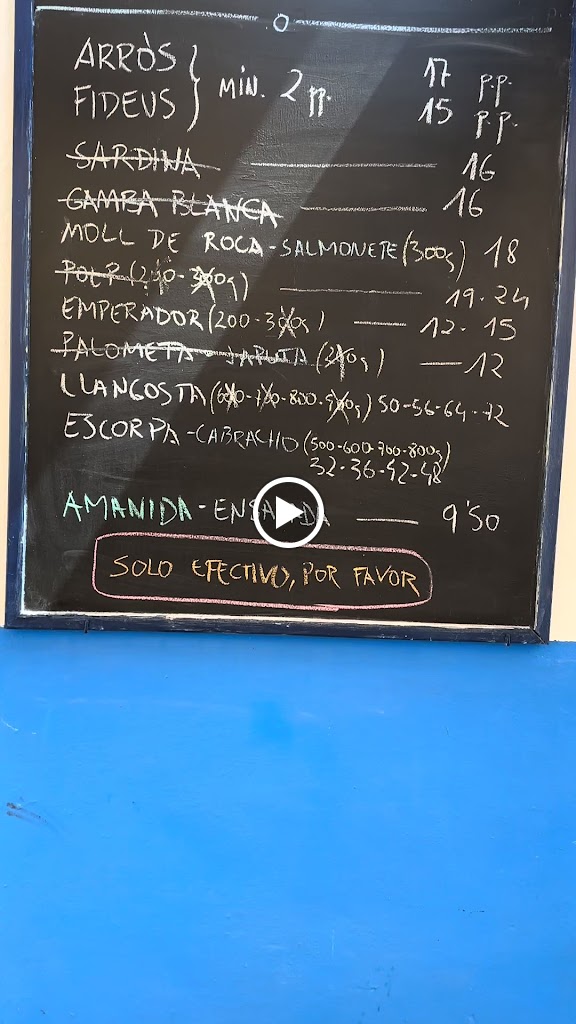 ARRÒS } MIN. 2 pp. 17 p.p.
FIDEUS 15 p.p.
SARDINA 16
GAMBA BLANCA 16
MOLL DE ROCA - SALMONETE (300g) 18
POLP (200-300g) 19-24
EMPERADOR (200-300g) 12-15
PALOMETA - JAPUTA (300g) 12
LLANGOSTA (600-700-800-900g) 50-56-64-72
ESCORPA - CABRACHO (500-600-700-800g)
32-36-42-48
AMANIDA - ENSALADA 9'50
SOLO EFECTIVO, POR FAVOR